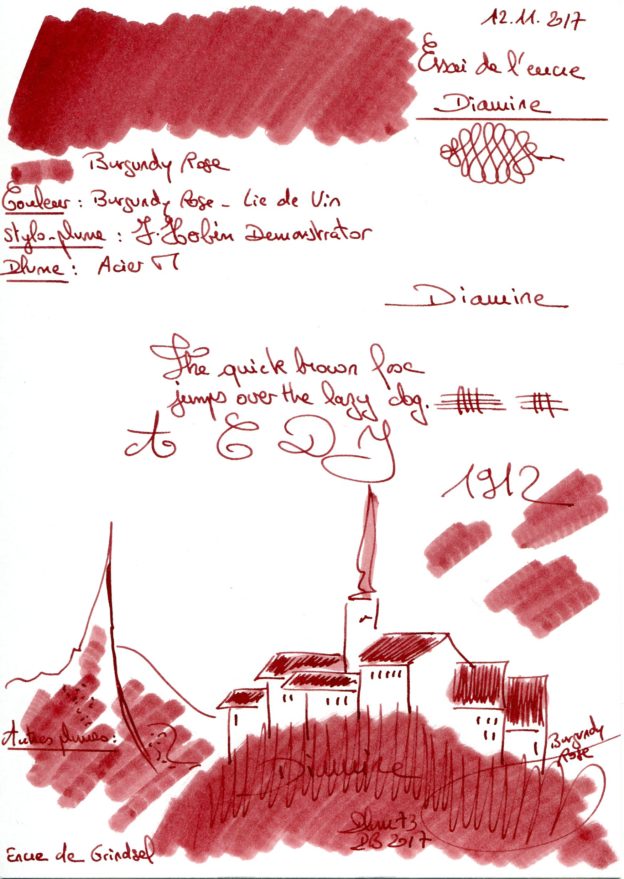 12.11.2017
Essai de l'encre
Diamine
Burgundy Rose
Couleur : Burgundy Rose - Lie de Vin
Stylo-plume : J. Herbin Demonstrator
Plume : Acier M
Diamine
The quick brown fox
jumps over the lazy dog.
A E D J
1912
Autres plumes :
Burgundy
Rose
Diamine
Plume73
DB 2017
Encre de Grindsel